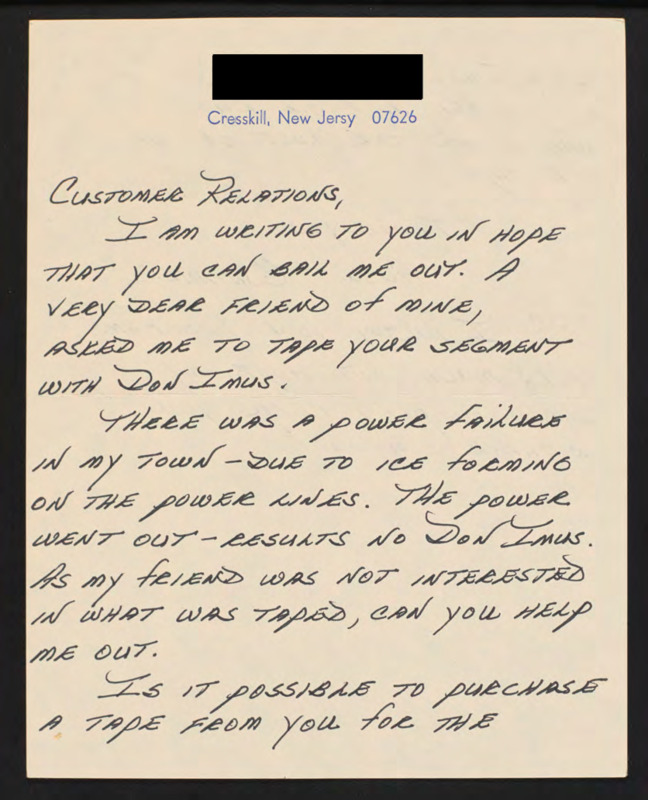 Cresskill, New Jersy 07626
CUSTOMER RELATIONS,
I AM WRITING TO YOU IN HOPE
THAT YOU CAN BAIL ME OUT. A
VERY DEAR FRIEND OF MINE,
ASKED ME TO TAPE YOUR SEGMENT
WITH DON IMUS.
THERE WAS A POWER FAILURE
IN MY TOWN - DUE TO ICE FORMING
ON THE POWER LINES. THE POWER
WENT OUT - RESULTS NO DON IMUS.
AS MY FRIEND WAS NOT INTERESTED
IN WHAT WAS TAPED, CAN YOU HELP
ME OUT.
IS IT POSSIBLE TO PURCHASE
A TAPE FROM YOU FOR THE